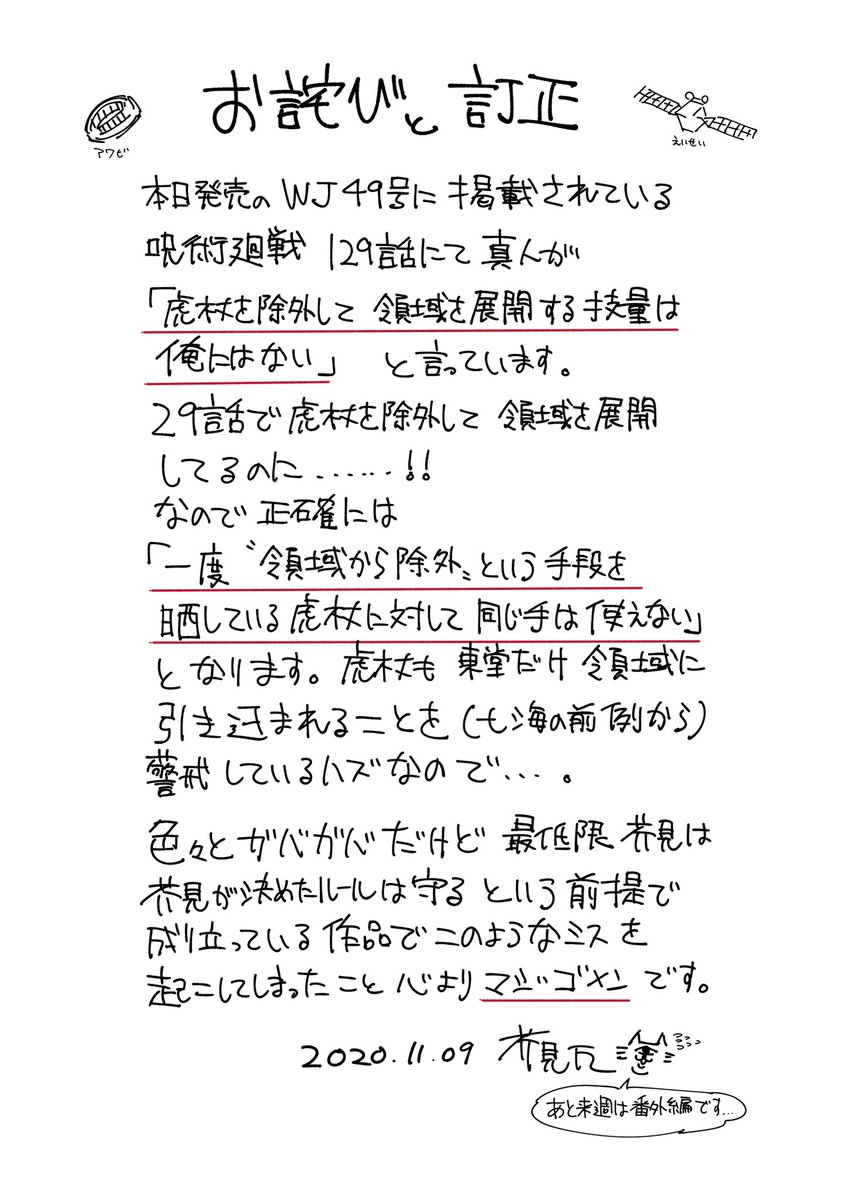 お詫びと訂正
アワビ
えいせい
本日発売のWJ49号に掲載されている
呪術廻戦 129話にて真人が
「虎杖を除外して 領域を展開する技量は
俺にはない」 と言っています。
29話で虎杖を除外して 領域を展開
してるのに……!!
なので正確には
「一度〝領域から除外〟という手段を
晒している虎杖に対して同じ手は使えない」
となります。虎杖も東堂だけ領域に
引き込まれることを(七海の前例から)
警戒しているハズなので…。
色々とガバガバだけど最低限芥見は
芥見が決めたルールは守るという前提で
成り立っている作品でこのようなミスを
起こしてしまったこと心よりマジゴメンです。
2020.11.09 芥見下々
あと来週は番外編です…